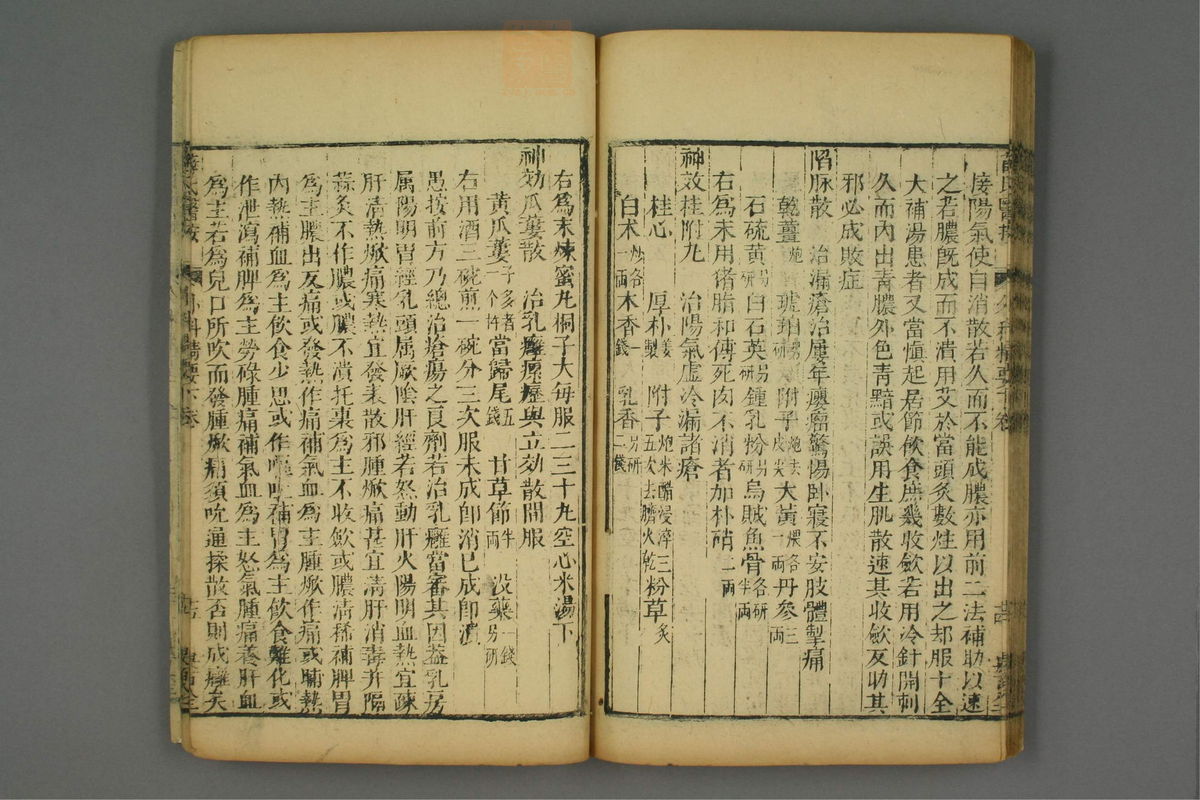 接陽氣使自消散若久而不能成膿亦用前二法補助以速
之若膿既成而不潰用艾於當頭灸數炷以出之却服十全
大補湯患者又當慎起居節飲食庶幾收歛若用冷針開刺
久而內出青膿外色青黯或誤用生肌散速其收歛反助其
邪必成敗症
陷脉散 治漏瘡治屢年癭瘤驚惕卧寢不安肢體掣痛
乾薑炮 琥珀另研 附子炮去皮尖 大黃煨各一兩 丹參三兩
石硫黃另研 白石英另研 鍾乳粉另研 烏賊魚骨各研半兩
右爲末用猪脂和傅死肉不消者加朴硝二兩
神效桂附丸 治陽氣虛冷漏諸瘡
桂心 厚朴姜製 附子炮米醋浸淬三五次去臍火乾 粉草炙
白术炒各一兩 木香一錢 乳香另研二錢
右爲末煉蜜丸桐子大每服二三十丸空心米湯下
神効瓜蔞散 治乳癰瘰癧與立効散間服
黃瓜蔞子多者一个杵 當歸尾五錢 甘草節半兩 沒藥一錢另研
右用酒三碗煎一碗分三次服未成卽消已成卽潰
愚按前方乃總治瘡瘍之良劑若治乳癰當審其因葢乳房
属陽明胃經乳頭属厥隂肝經若怒動肝火陽明血熱宜疎
肝清熱焮痛寒熱宜發表散邪腫焮痛甚宜清肝消毒并隔
蒜灸不作膿或膿不潰托裏爲主不收歛或膿清稀補脾胃
爲主膿出反痛或發熱作痛補氣血爲主腫焮作痛或晡熱
內熱補血爲主飲食少思或作嘔吐補胃爲主飲食難化或
作泄瀉補脾爲主勞碌腫痛補氣血爲主怒氣腫痛養肝血
爲主若爲兒口所吹而發腫焮痛須吮通揉散否則成癰矣
薛氏醫按 外科精要下卷